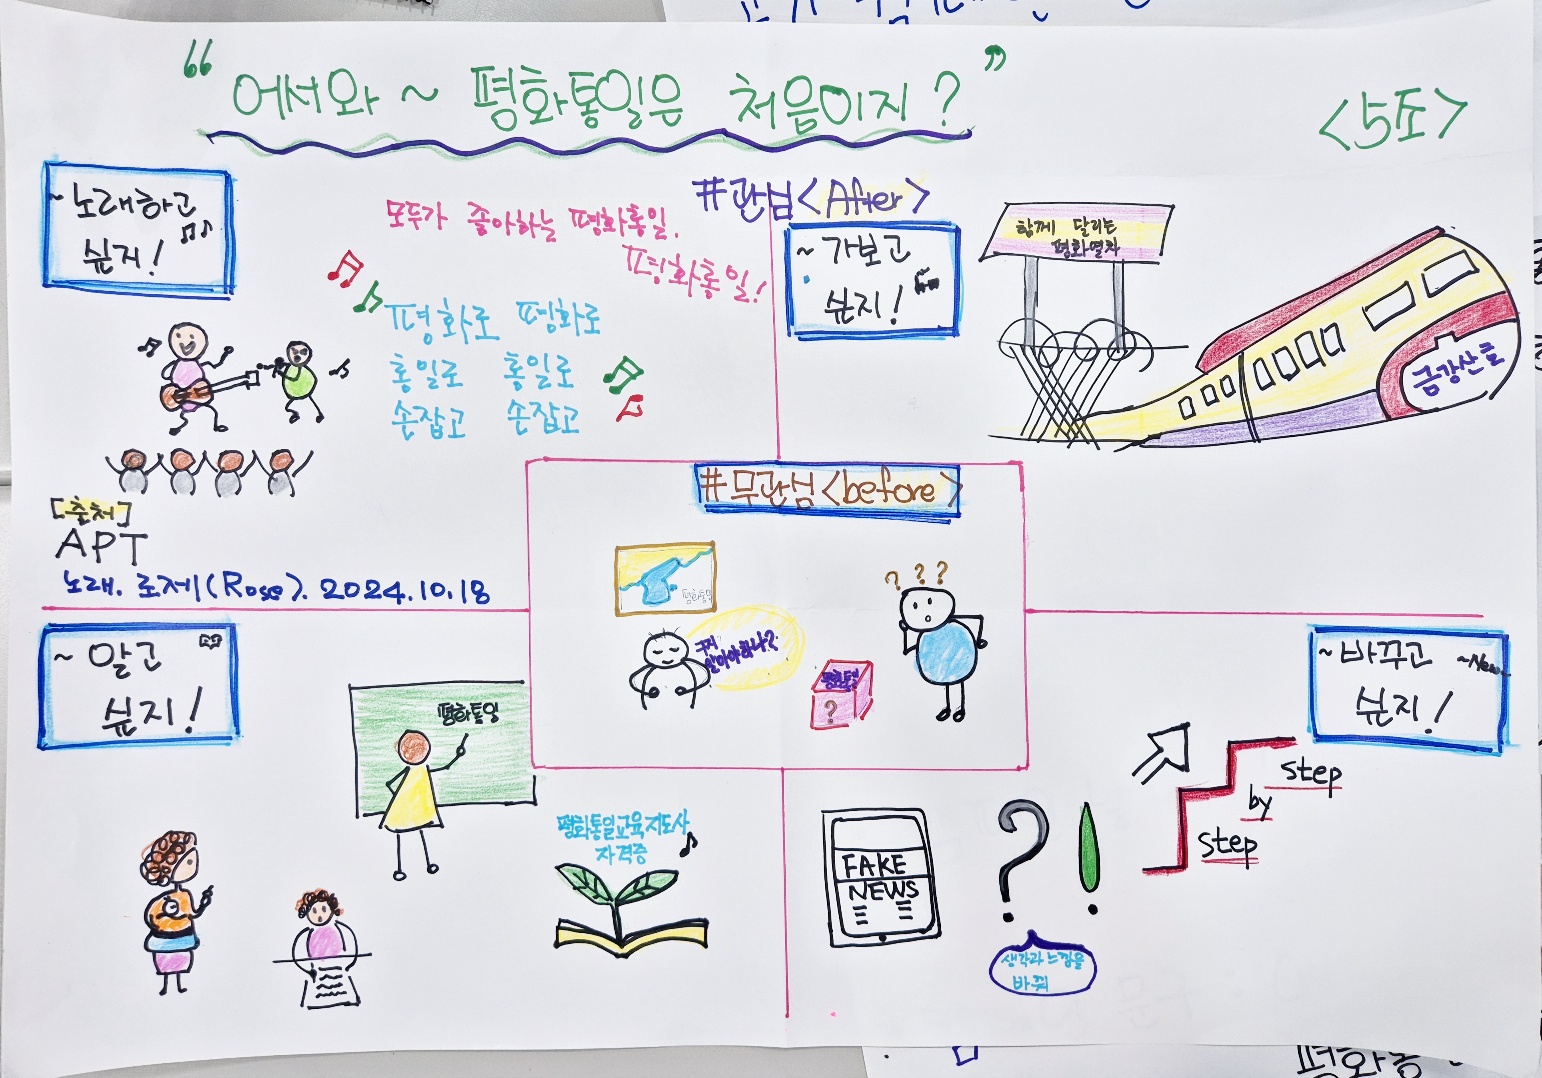 “어서와 ~ 평화통일은 처음이지?”
<5조>
~노래하고
싶지!
모두가 좋아하는 평화통일.
평화통일!
평화로 평화로
통일로 통일로
손잡고 손잡고
[출처]
APT
노래. 로제(Rose). 2024.10.18
#관심<After>
~가보고
싶지!
함께 달리는
평화열차
금강산호
#무관심<before>
평화통일
???
굳이
알아야하나?
평화통일
?
~알고
싶지!
평화통일
평화통일교육지도사
자격증
~바꾸고 ~New
싶지!
step
by
step
FAKE
NEWS
? !
생각과 느낌을
바꿔
평화통